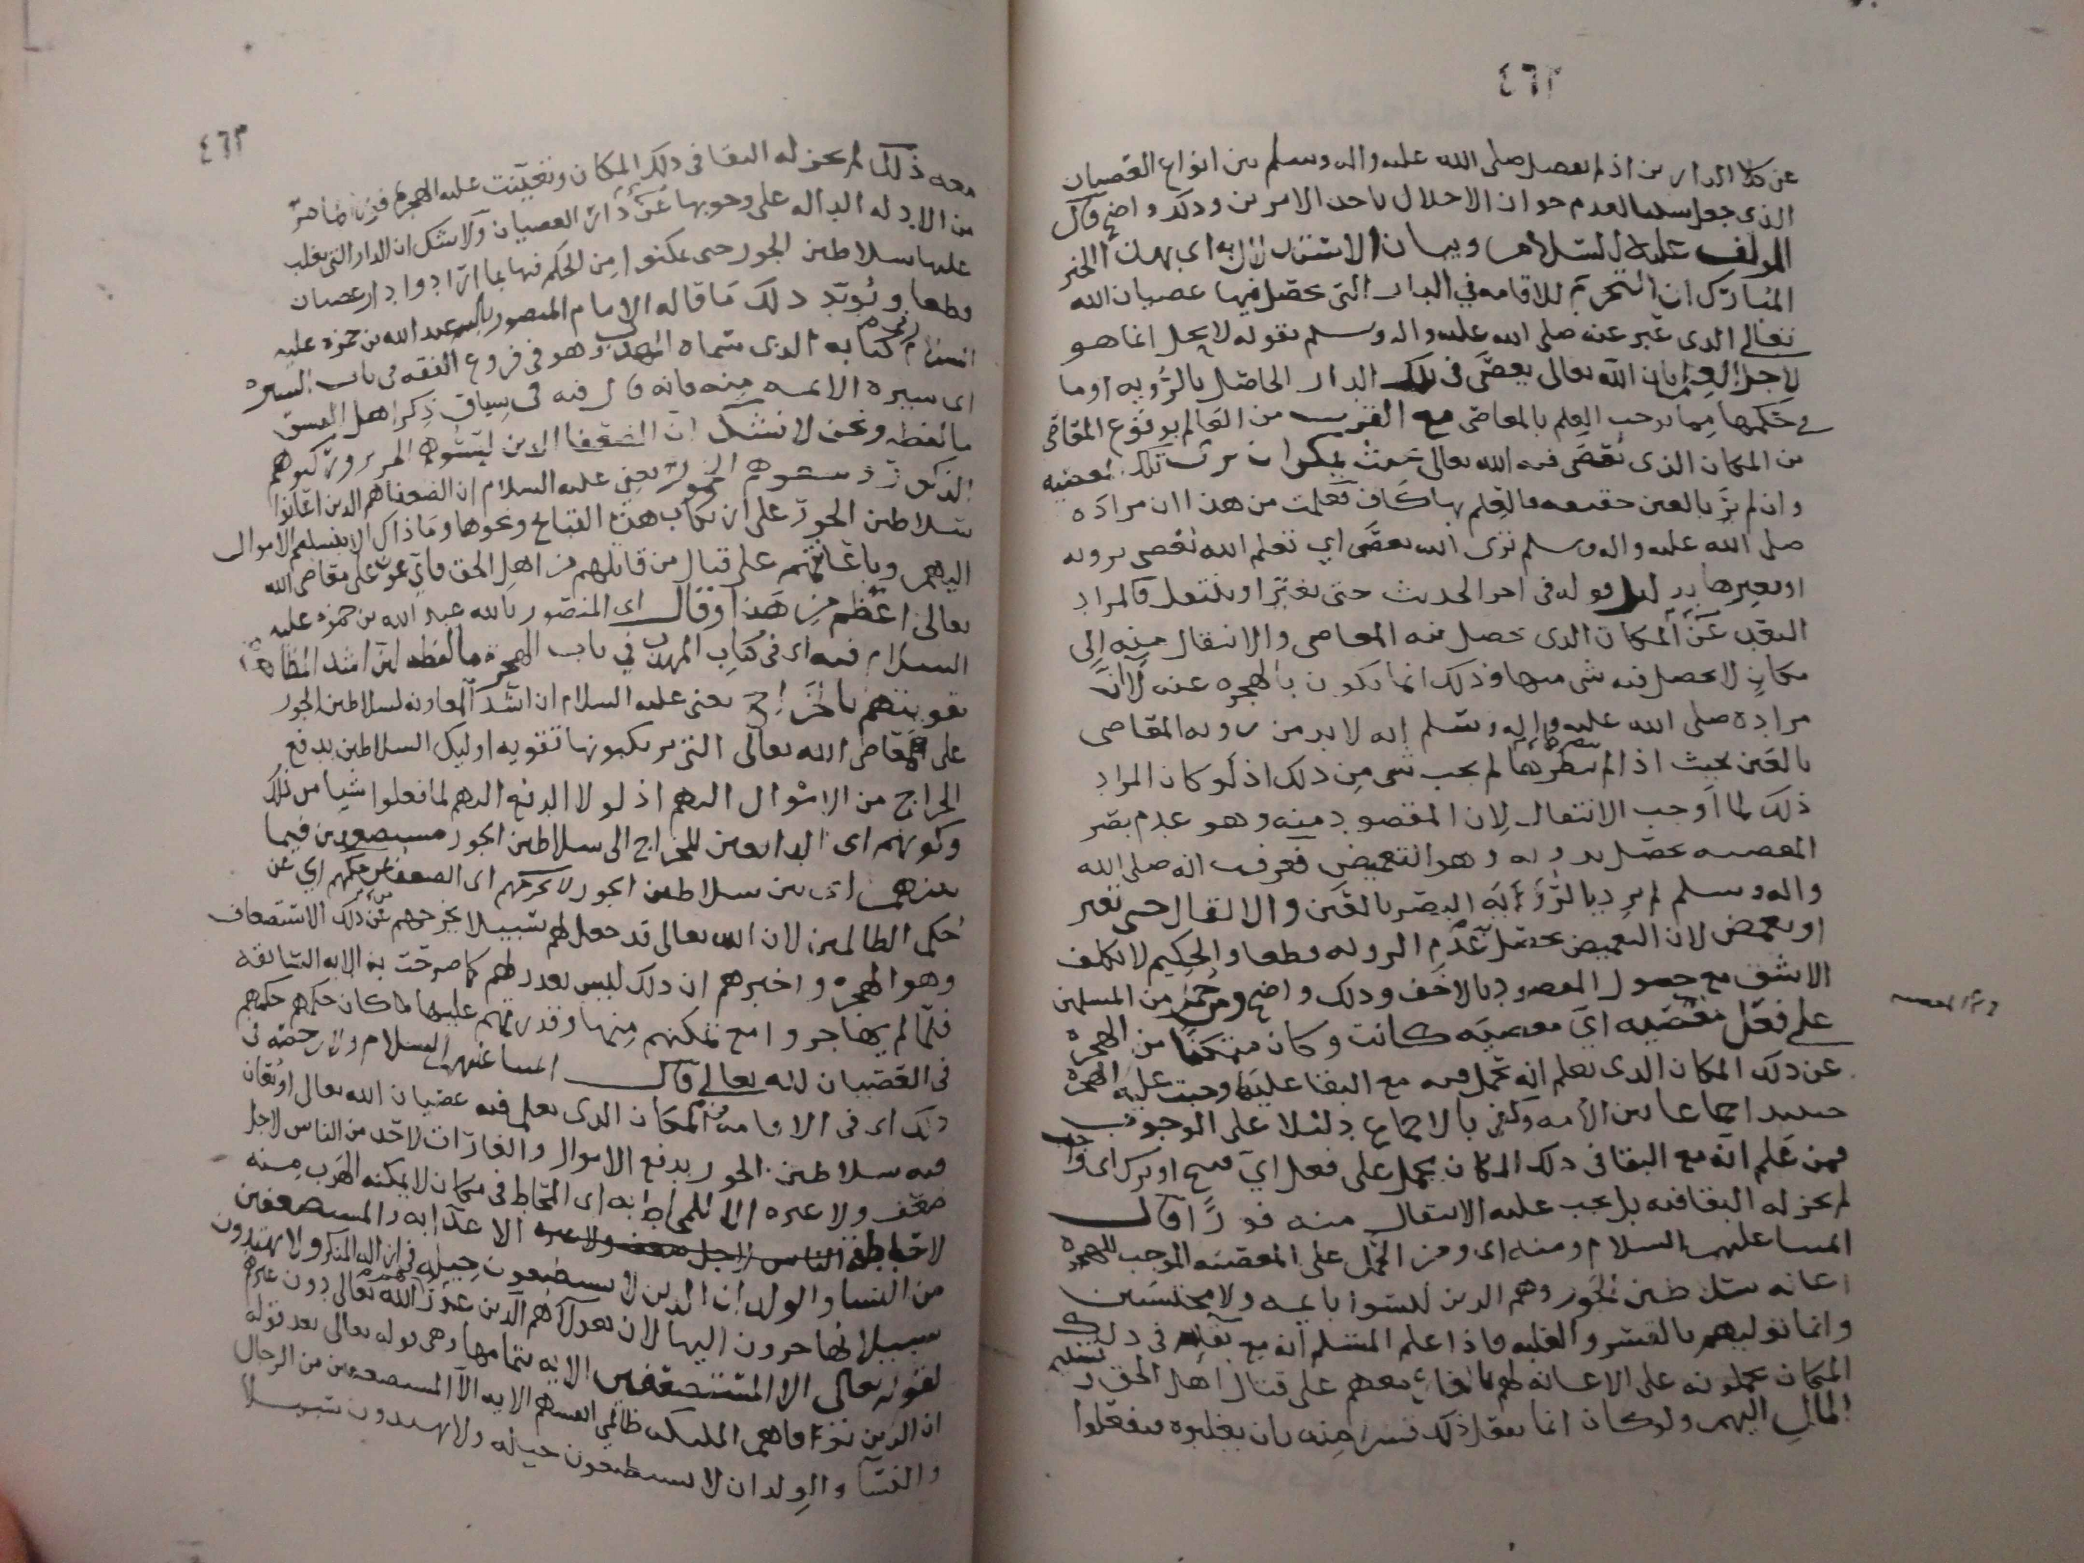 ٤٦٢
عن تلك الدارين اذ لم يفصل صلى الله عليه واله وسلم بين انواع العصيان
الذي جعل سببا لعدم جواز الاخلال باحد الامرين وذلك واضح قال
المولف عليه السلام وبيان الاستدلال به اي بهذا الخبر
المبارك ان التحريم للاقامه في الدار التي يحصل فيها عصيان الله
تعالى الذي عبر عنه صلى الله عليه واله وسلم بقوله لا يحل انما هو
لاجل العلم بان الله تعالى يعصى في تلك الدار الحاصل بالرؤيه او ما
في حكمها مما يوجب العلم بالمعاصي مع القرب من العالم بوقوع المعاصي
من المكان الذي يعصى فيه الله تعالى بحيث يمكن ان يرى تلك المعصيه
وان لم ير بالعين حقيقه فالعلم بها كاف فعلمت من هذا ان مراده
صلى الله عليه واله وسلم ترى الله يعصى اي تعلم الله يعصى برويه
او بغيرها بدليل قوله في اخر الحديث حتى تغير او تنتقل فالمراد
البعد عن المكان الذي حصل فيه المعاصي والانتقال منه الى
مكان لا يحصل فيه شي منها وذلك انما يكون بالهجره عنه لا ان
مراده صلى الله عليه واله وسلم انه لا بد من رويه المعاصي
بالعين بحيث اذا لم ينظرها لم يجب شي من ذلك اذ لو كان المراد
ذلك لما اوجب الانتقال لان المقصود منه وهو عدم بصر
المعصيه يحصل بدونه وهو التغميض فعرفت انه صلى الله
واله وسلم لم يرد بالرؤيه البصر بالعين والا لقال حتى تغير
او تغمض لان التغميض يحصل عدم الرويه قطعا والحكيم لا يكلف
الاشق مع حصول المقصود بالاخف وذلك واضح ومن حمل من المسلمين
على فعل معصيه اي معصيه كانت وكان متمكنا من الهجره
عن ذلك المكان الذي يعلم انه يحمل فيه مع البقا عليها وجبت عليه الهجره
حينئذ اجماعا بين الامه وكفى بالاجماع دليلا على الوجوب
فمن علم انه مع البقا في ذلك المكان يحمل على فعل اي قبيح او ترك اي واجب
لم يجز له البقا فيه بل يجب عليه الانتقال منه فورا قال
المسا عليهم السلام ومنه اي ومن الحمل على المعصيه الموجب للهجره
اعانه سلاطين الجور وهم الذين ليسوا بايمه ولا محتسبين
وانما توليهم بالقسر والغلبه فاذا علم المسلم انه مع بقائه في ذلك
المكان يحملونه على الاعانه لهم بالبقاء معهم على قتال اهل الحق او تسليم
المال اليهم ولو كان انما يفعل ذلك قسرا منه بان يغلبوه فيفعلوا
٤٦٣
معه ذلك لم يجز له البقا في ذلك المكان وتعينت عليه الهجره فورا لما مر
من الادله الداله على وجوبها عن دار العصيان ولا شك ان الدار التي يغلب
عليها سلاطين الجور حتى يمكنوا من الحكم فيها بما ارادوا دار عصيان
قطعا ويؤيد ذلك ما قاله الامام المنصور بالله عبد الله بن حمزه عليه
السلام في كتابه الذي سماه المهذب وهو في فروع الفقه في باب السيره
اي سيره الائمه منه فانه قال فيه في سياق ذكر اهل الفسق
ما لفظه ونحن لا نشك ان الضعفا الذين لبسوهم الحرير وركبوهم
الذكور وسقوهم الخمور يعني عليه السلام ان الضعفا هم الذين اعانوا
سلاطين الجور على ارتكاب هذه القبائح ونحوها وما ذاك الا بتسليم الاموال
اليهم وباعانتهم على قتال من قاتلهم من اهل الحق فاي عون على معاصي الله
تعالى اعظم من هذا وقال اي المنصور بالله عبد الله بن حمزه عليه
السلام فيه اي في كتاب المهذب في باب الهجره ما لفظه ان اشد المظاهره
تقويتهم بالخراج يعني عليه السلام ان اشد المعاونه لسلاطين الجور
على معاصي الله تعالى التي يرتكبونها تقويه اوليك السلاطين بدفع
الخراج من الاموال اليهم اذ لولا الدفع اليهم لما فعلوا شيا من ذلك
وكونهم اي الدافعين للخراج الى سلاطين الجور مستضعفين فيما
بينهم اي بين سلاطين الجور لا يخرجهم اي الضعفا عن حكمهم اي عن
حكم الظالمين لان الله تعالى قد جعل لهم سبيلا يخرجهم عن ذلك الاستضعاف
وهو الهجره واخبرهم ان ذلك ليس بعذر لهم كما صرحت به الايه السابقه
فلما لم يهاجروا مع تمكنهم منها وقدرتهم عليها كان حكمهم حكمهم
في العصيان لله تعالى قال المسا عليهم السلام ولا رخصه في
ذلك اي في الاقامه في المكان الذي يعلم فيه عصيان الله تعالى او يعان
فيه سلاطين الجور بدفع الاموال والغارات لاحد من الناس لاجل
ضعف ولا غيره الا للمحاط به اي المحاط في مكان لا يمكنه الهرب منه
لاحاطة الناس لاجل ضعف ولا غيره الا عذابه والمستضعفين
من النسا والولدان الذين لا يستطيعون حيله في ازاله المنكر ولا يهتدون
سبيلا يهاجرون اليها لان هولاء هم الذين عذر الله تعالى دون غيرهم
لقوله تعالى الا المستضعفين الايه بتمامها وهي قوله تعالى بعد قوله
ان الذين توفاهم المليكه ظالمي انفسهم الايه الا المستضعفين من الرجال
والنسآ والولدان لا يستطيعون حيله ولا يهتدون سبيلا